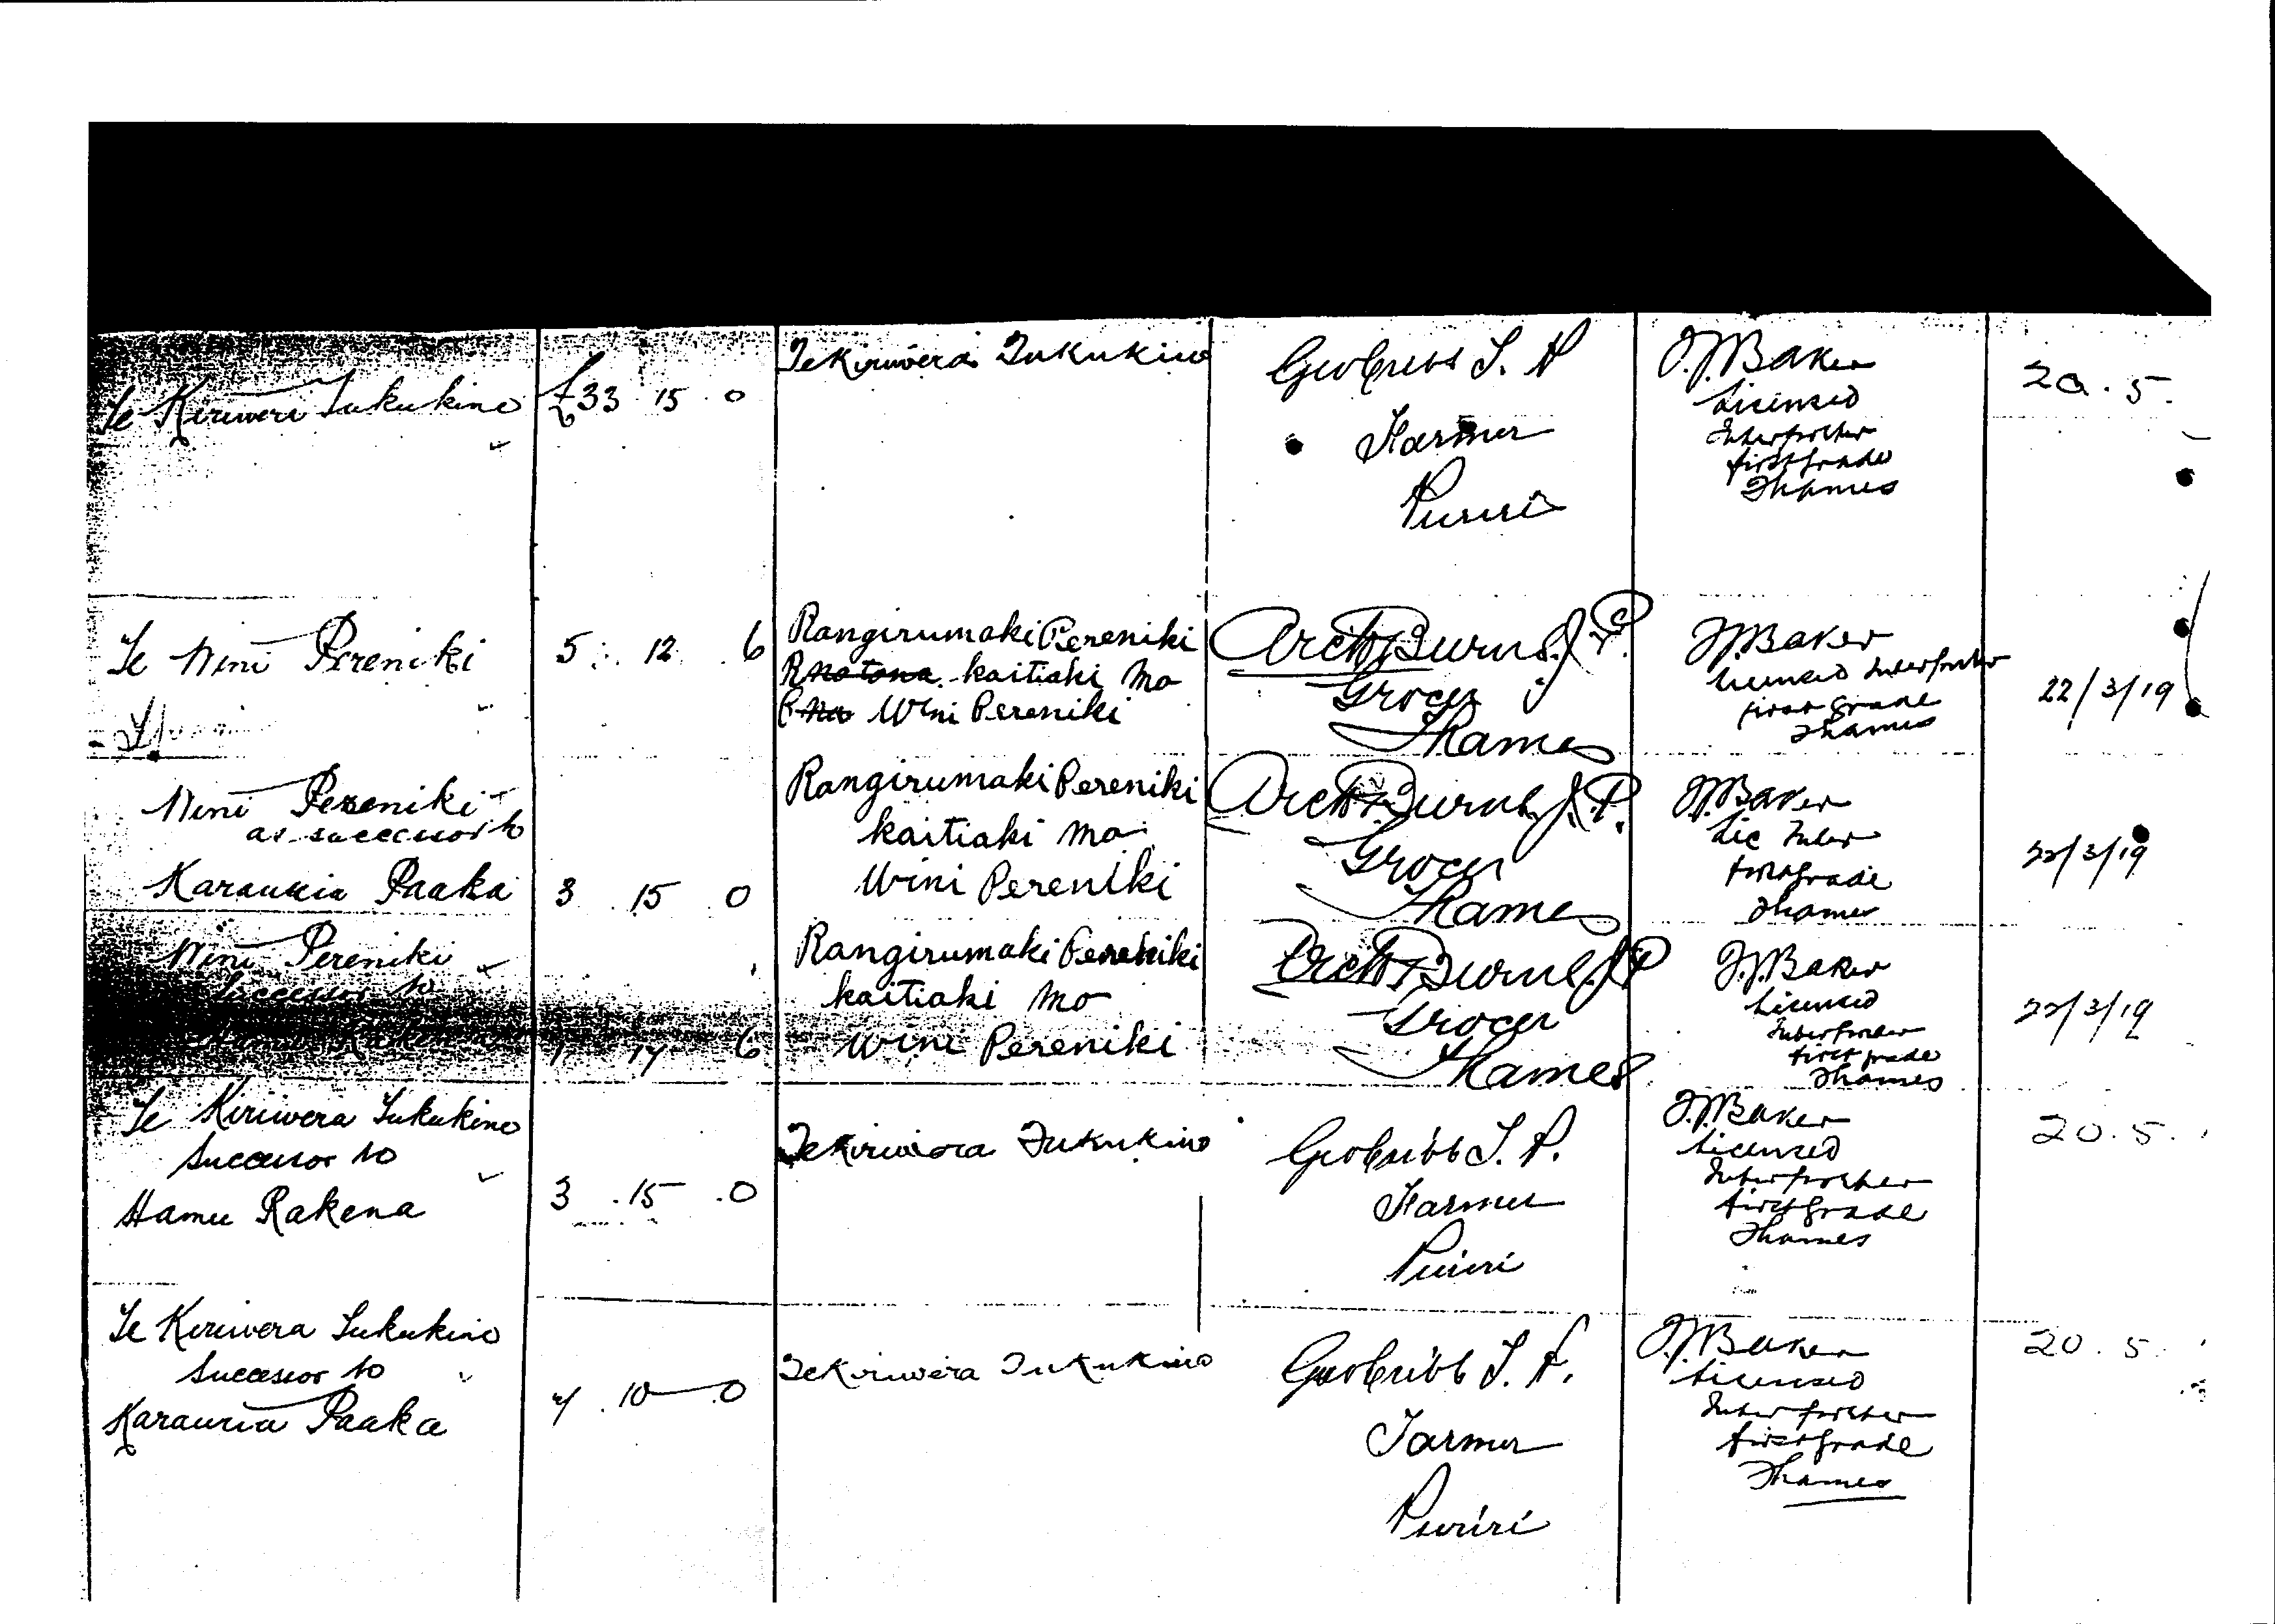 Te Kiriwera Tukukino
£33 15 0
Te Kiriwera Tukukino
Geo Cribb J. P
Farmer
Puriri
J.J. Baker
Licensed
Interpreter
first grade
Thames
20. 5.
Te Wini Pereniki
5 . 12 . 6
Rangirumaki Pereniki
kaitiaki mo
Wini Pereniki
Arch Burns J. P.
Grocer
Thames
J.J. Baker
Licensed Interpreter
first grade
Thames
22/3/19
Wini Pereniki
as successor to
Karauria Paaka
3 . 15 . 0
Rangirumaki Pereniki
kaitiaki mo
Wini Pereniki
Arch Burns J. P.
Grocer
Thames
J.J. Baker
Lic Inter
first grade
Thames
22/3/19
Wini Pereniki
Successor to
Hamu Rakena
17 6
Rangirumaki Pereniki
kaitiaki mo
Wini Pereniki
Arch Burns J P
Grocer
Thames
J.J. Baker
Licensed
Interpreter
first grade
Thames
22/3/19
Te Kiriwera Tukukino
Successor to
Hamu Rakena
3 . 15 . 0
Te Kiriwera Tukukino
Geo Cribb J. P.
Farmer
Puriri
J.J. Baker
Licensed
Interpreter
first grade
Thames
20. 5.
Te Kiriwera Tukukino
Successor to
Karauria Paaka
10 — 0
Te Kiriwera Tukukino
Geo Cribb J. P.
Farmer
Puriri
J.J. Baker
Licensed
Interpreter
first grade
Thames
20. 5.